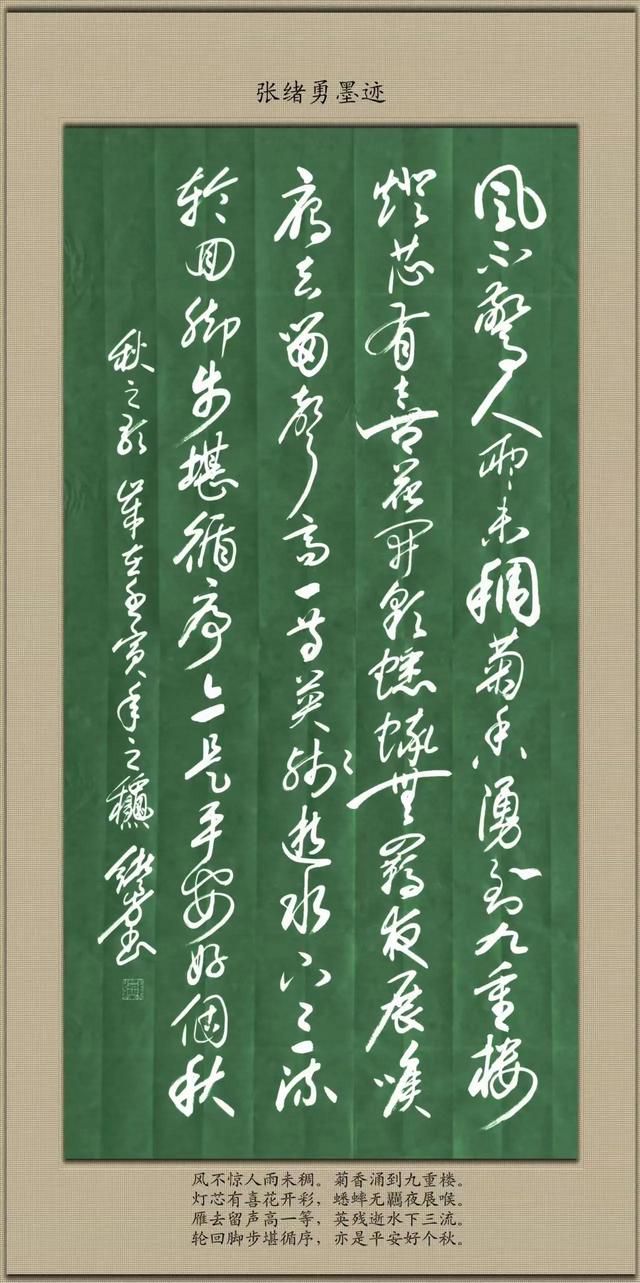 张绪勇墨迹
風不驚人雨未稠菊香湧到九重楼
燈芯有喜花開彩蟋蟀無羈夜展喉
雁去留聲高一等英残逝水下三流
轮回脚步堪循序亦是平安好個秋
秋之 歲在壬寅年之龝 緒勇書
风不惊人雨未稠。菊香涌到九重楼。
灯芯有喜花开彩，蟋蟀无羈夜展喉。
雁去留声高一等，英残逝水下三流。
轮回脚步堪循序，亦是平安好个秋。